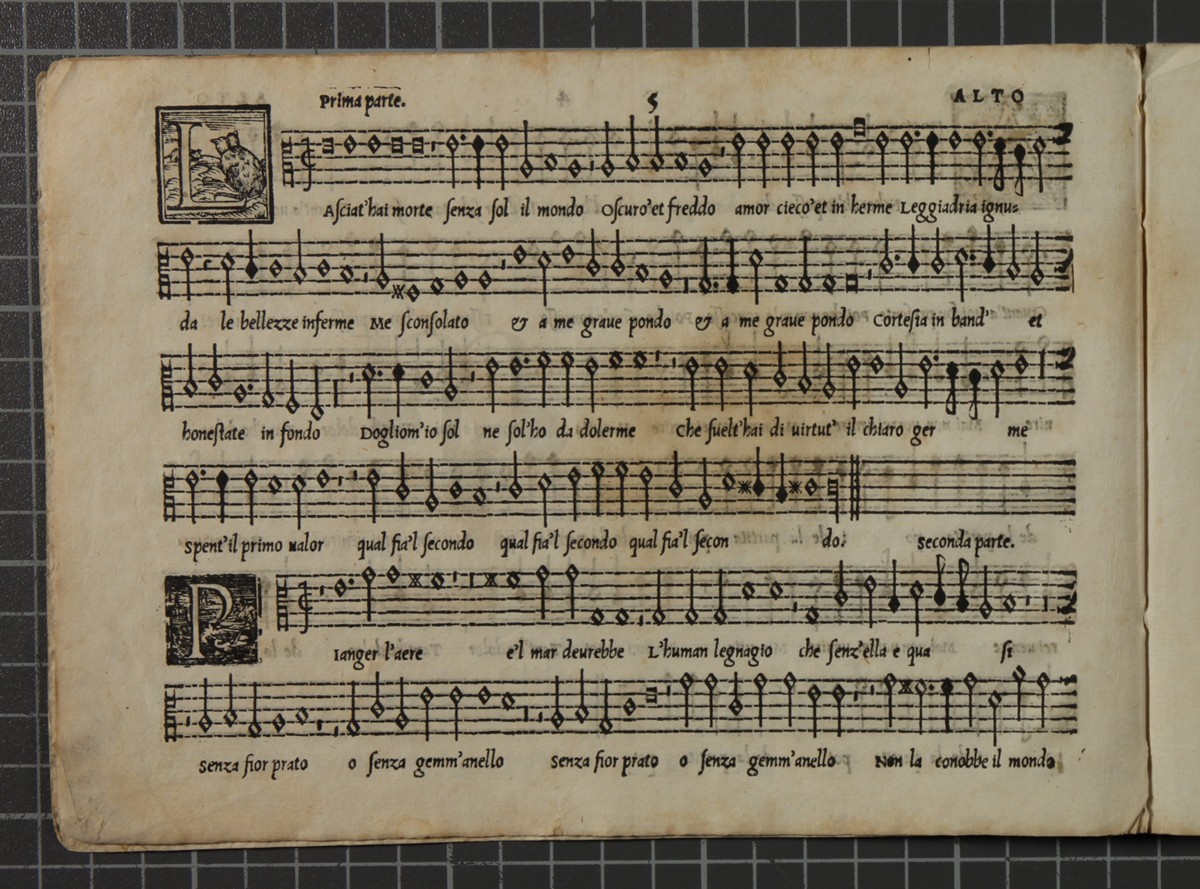 Prima parte. 5 ALTO
LAsciat'hai morte senza sol il mondo Oscuro'et freddo amor cieco'et in herme Leggiadria ignu=
da le bellezze inferme Me sconsolato & a me graue pondo & a me graue pondo Cortesia in band' et
honestate in fondo Dogliom'io sol ne sol'ho da dolerme Che suelt'hai di uirtut' il chiaro ger me
Spent'il primo ualor qual fia'l secondo qual fia'l secondo qual fia'l secon do. Seconda parte.
PIanger l'aere e'l mar deurebbe L'human legnagio che senz'ella e qua si
Senza fior prato o senza gemm'anello Senza fior prato o senza gemm'anello Non la conobbe il mondo